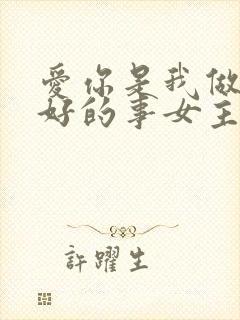 愛你是我做
好的事女主
許躍生